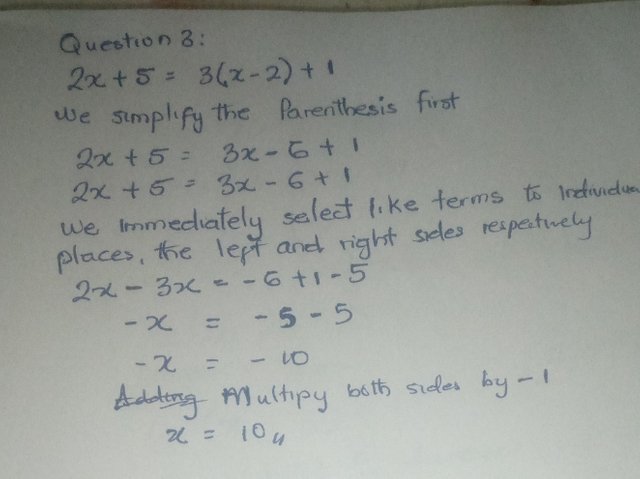 Question 3:
2x + 5 = 3(x - 2) + 1
We simplify the Parenthesis first
2x + 5 = 3x - 6 + 1
2x + 5 = 3x - 6 + 1
We Immediately select like terms to Individual
places, the left and right sides respectively
2x - 3x = -6 + 1 - 5
-x = -5 - 5
-x = -10
Adding Multipy both sides by -1
x = 10,,